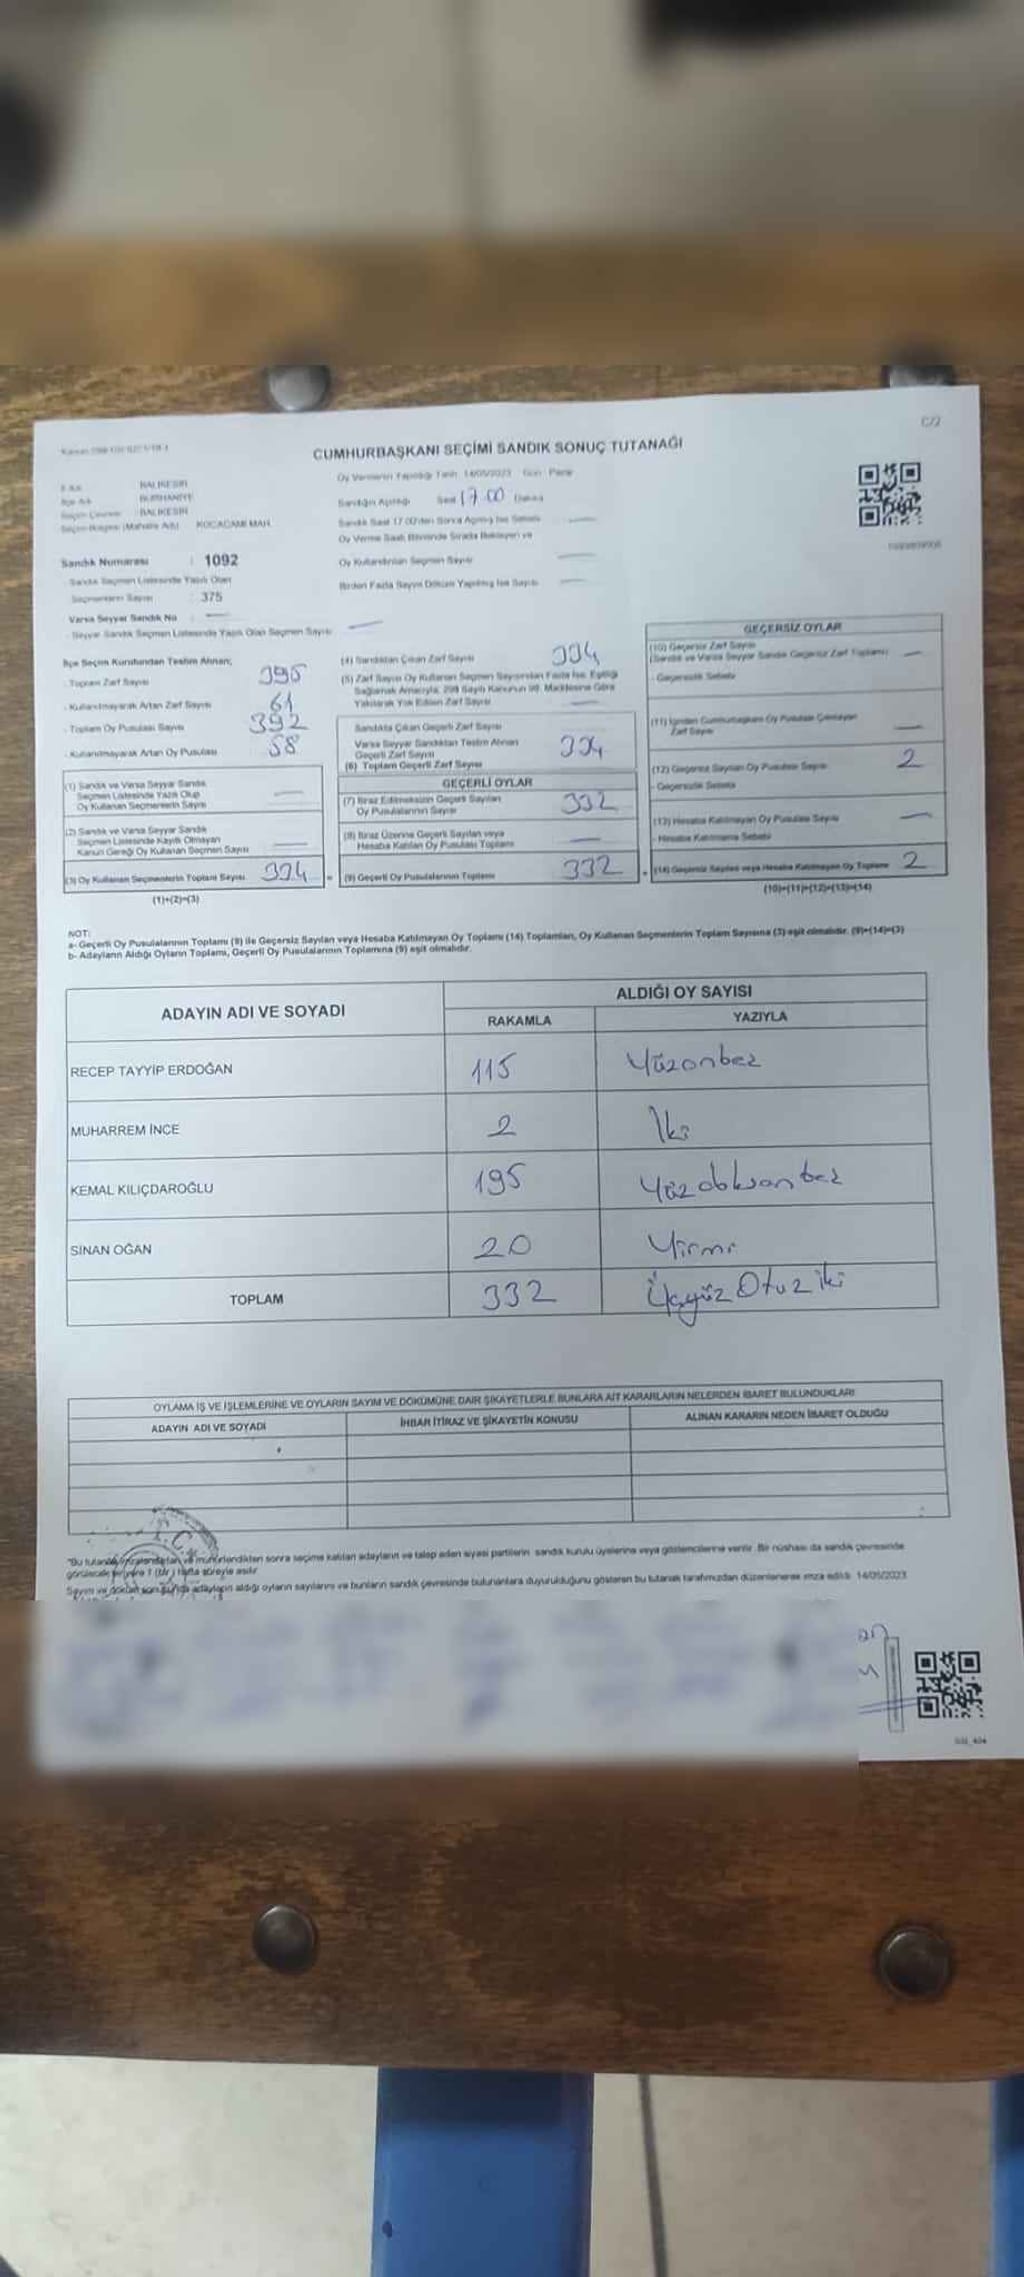 C/2
CUMHURBAŞKANI SEÇİMİ SANDIK SONUÇ TUTANAĞI
Oy Vermenin Yapıldığı Tarih 14/05/2023 Gün Pazar
BALIKESİR
BURHANİYE
BALIKESİR
KOCACAMİ MAH.
Sandığın Açıldığı Saat 17 00
Sandık Numarası : 1092
Sandık Seçmen Listesinde Yazılı Olan
Seçmenlerin Sayısı : 375
Varsa Seyyar Sandık No : —
- Seyyar Sandık Seçmen Listesinde Yazılı Olan Seçmen Sayısı —
Oy Kullandırılan Seçmen Sayısı —
Birden Fazla Sayım Döküm Yapılmış İse Sayısı —
İlçe Seçim Kurulundan Teslim Alınan;
- Toplam Zarf Sayısı 395
- Kullanılmayarak Artan Zarf Sayısı 61
- Toplam Oy Pusulası Sayısı 392
- Kullanılmayarak Artan Oy Pusulası 58
(1) Sandık ve Varsa Seyyar Sandık
Seçmen Listesinde Yazılı Olup
Oy Kullanan Seçmenlerin Sayısı —
(2) Sandık ve Varsa Seyyar Sandık
Seçmen Listesinde Kayıtlı Olmayan
Kanun Gereği Oy Kullanan Seçmen Sayısı —
(3) Oy Kullanan Seçmenlerin Toplam Sayısı 334 =
(1)+(2)=(3)
(4) Sandıktan Çıkan Zarf Sayısı 334
(5) Zarf Sayısı Oy Kullanan Seçmen Sayısından Fazla İse, Eşitliği
Sağlamak Amacıyla, 298 Sayılı Kanunun 98. Maddesine Göre
Yakılarak Yok Edilen Zarf Sayısı —
Sandıkta Çıkan Geçerli Zarf Sayısı
Varsa Seyyar Sandıktan Teslim Alınan
Geçerli Zarf Sayısı
(6) Toplam Geçerli Zarf Sayısı 334
GEÇERLİ OYLAR
(7) İtiraz Edilmeksizin Geçerli Sayılan
Oy Pusulalarının Sayısı 332
(8) İtiraz Üzerine Geçerli Sayılan veya
Hesaba Katılan Oy Pusulası Toplamı —
(9) Geçerli Oy Pusulalarının Toplamı 332 +
GEÇERSİZ OYLAR
(10) Geçersiz Zarf Sayısı
(Sandık ve Varsa Seyyar Sandık Geçersiz Zarf Toplamı) —
- Geçersizlik Sebebi
(11) İçinden Cumhurbaşkanı Oy Pusulası Çıkmayan
Zarf Sayısı —
(12) Geçersiz Sayılan Oy Pusulası Sayısı 2
- Geçersizlik Sebebi
(13) Hesaba Katılmayan Oy Pusulası Sayısı —
- Hesaba Katılmama Sebebi
(14) Geçersiz Sayılan veya Hesaba Katılmayan Oy Toplamı 2
(10)+(11)+(12)+(13)=(14)
NOT:
a- Geçerli Oy Pusulalarının Toplamı (9) ile Geçersiz Sayılan veya Hesaba Katılmayan Oy Toplamı (14) Toplamları, Oy Kullanan Seçmenlerin Toplam Sayısına (3) eşit olmalıdır. (9)+(14)=(3)
b- Adayların Aldığı Oyların Toplamı, Geçerli Oy Pusulalarının Toplamına (9) eşit olmalıdır.
ADAYIN ADI VE SOYADI
ALDIĞI OY SAYISI
RAKAMLA YAZIYLA
RECEP TAYYİP ERDOĞAN 115 Yüzonbeş
MUHARREM İNCE 2 İki
KEMAL KILIÇDAROĞLU 195 Yüzdoksanbeş
SİNAN OĞAN 20 Yirmi
TOPLAM 332 Üçyüz Otuz iki
OYLAMA İŞ VE İŞLEMLERİNE VE OYLARIN SAYIM VE DÖKÜMÜNE DAİR ŞİKAYETLERLE BUNLARA AİT KARARLARIN NELERDEN İBARET BULUNDUKLARI
ADAYIN ADI VE SOYADI İHBAR İTİRAZ VE ŞİKAYETİN KONUSU ALINAN KARARIN NEDEN İBARET OLDUĞU
T.C.
"Bu tutanak imzalandıktan ve mühürlendikten sonra seçime katılan adayların ve talep eden siyasi partilerin sandık kurulu üyelerine veya gözlemcilerine verilir. Bir nüshası da sandık çevresinde
görülecek bir yere 1 (bir) hafta süreyle asılır
Sayım ve döküm sonunda adayların aldığı oyların sayılarını ve bunların sandık çevresinde bulunanlara duyurulduğunu gösteren bu tutanak tarafımızdan düzenlenerek imza edildi. 14/05/2023